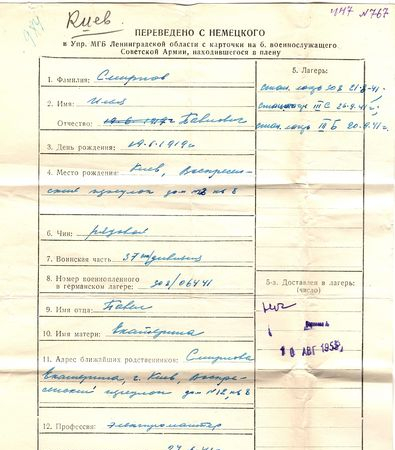 Киев
ПЕРЕВЕДЕНО С НЕМЕЦКОГО
в Упр. МГБ Ленинградской области с карточки на б. военнослужащего
Советской Армии, находившегося в плену
1. Фамилия: Смирнов
2. Имя: Илья
Отчество: Павлович
3. День рождения: 19.6.1919г
4. Место рождения: Киев, Воскресен-
ский переулок дом №12 кв 8
6. Чин: рядовой
7. Воинская часть: 37 дивизия
8. Номер военнопленного
в германском лагере: 302/06441
9. Имя отца: Павел
10. Имя матери: Екатерина
11. Адрес ближайших родственников: Смирнова
Екатерина, г. Киев, Воскре-
сенский переулок дом №12, кв 8
12. Профессия: электромонтер
5. Лагерь:
стац. лагерь
III C
стац. лагерь III Б
5-а. Доставлен в лагерь:
(число)
нет
АВГ 195